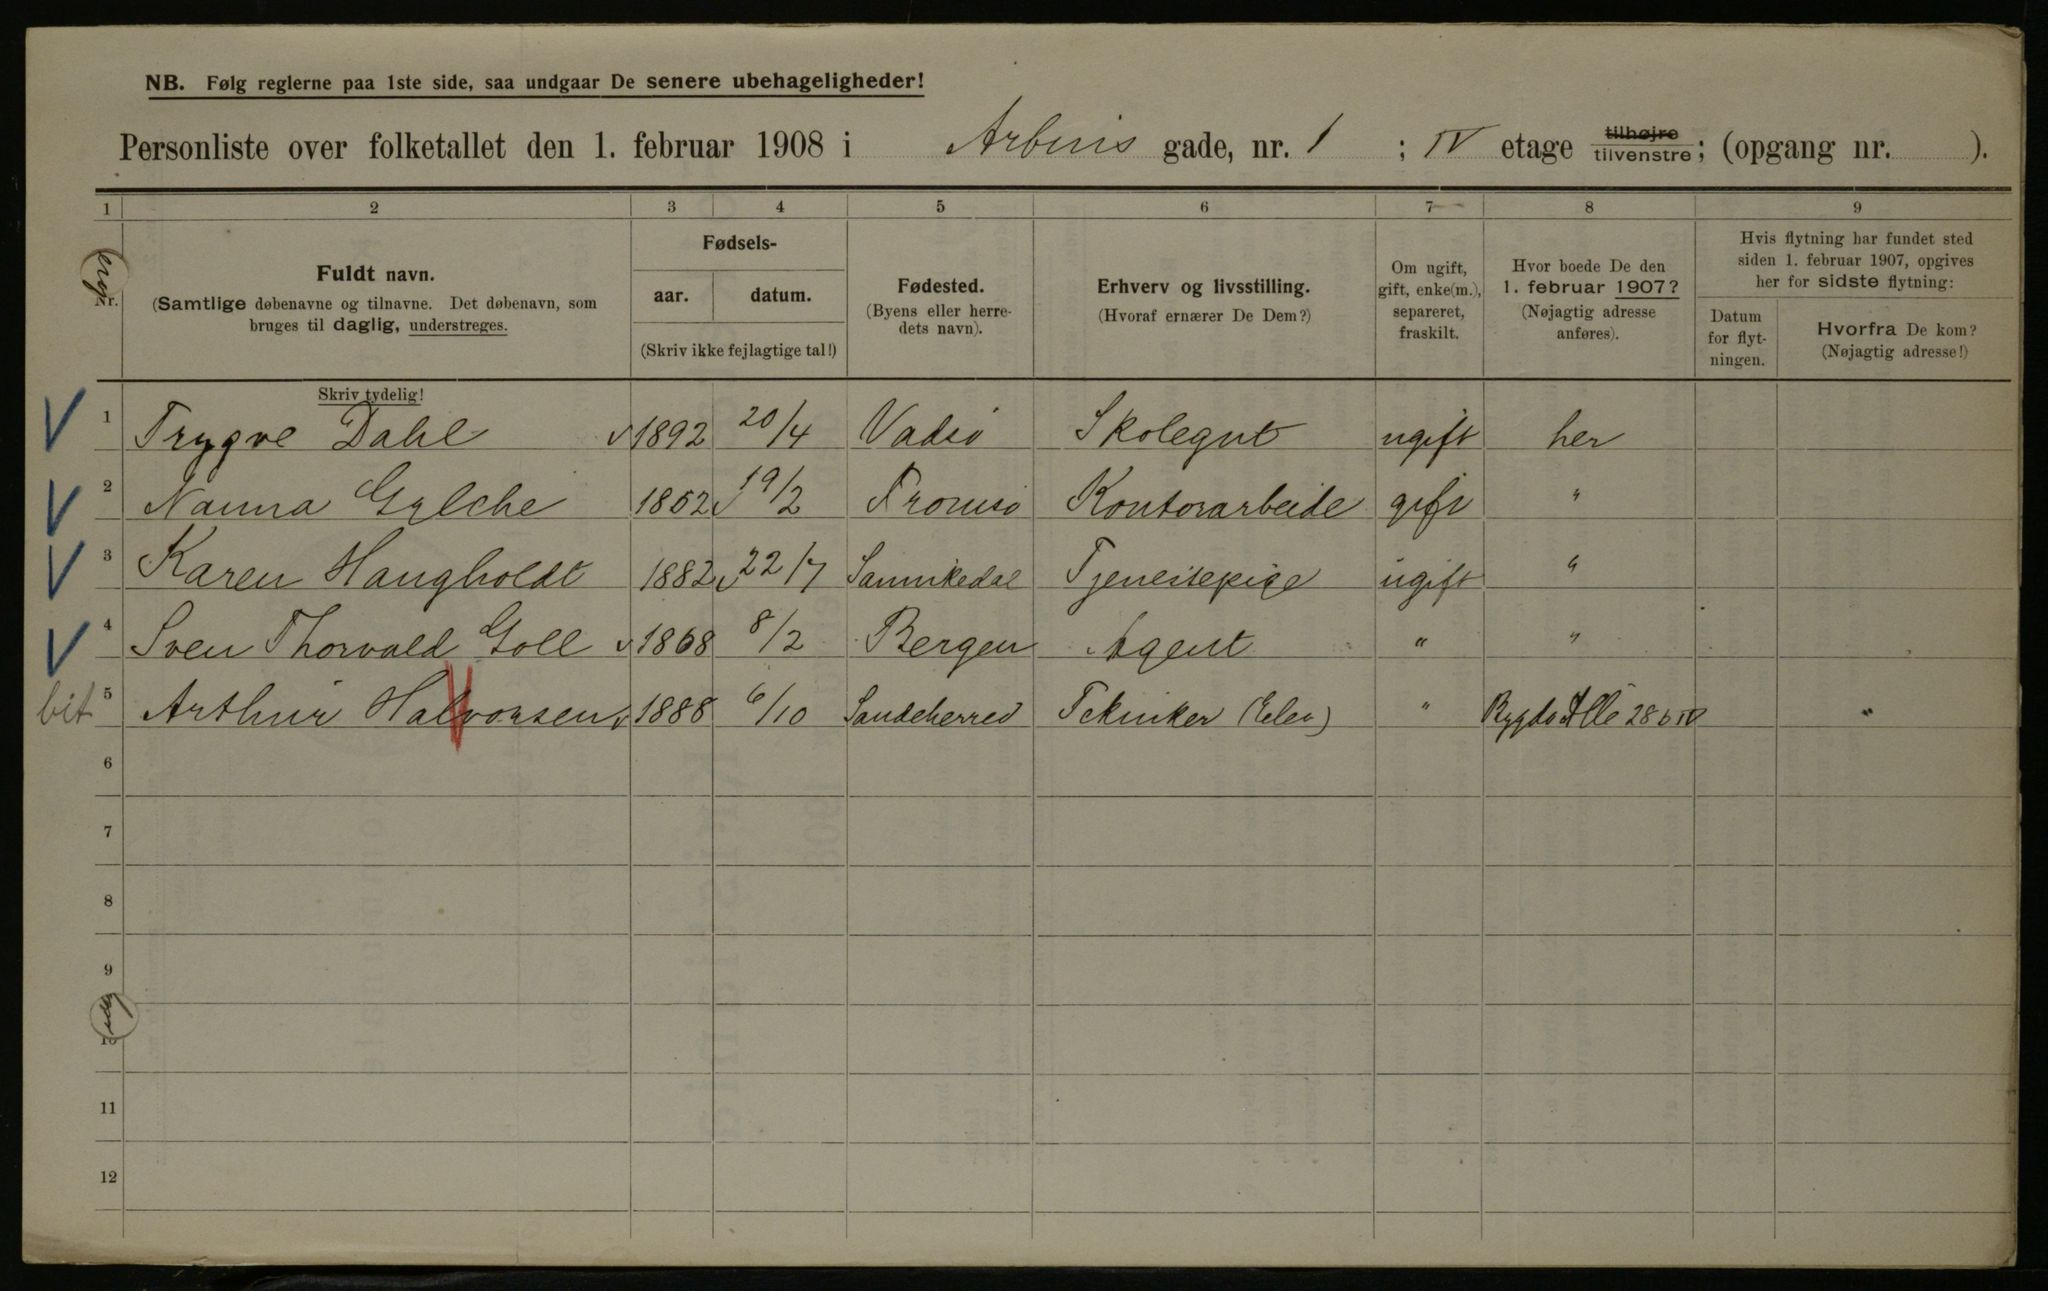 NB. Følg reglerne paa 1ste side, saa undgaar De senere ubehageligheder!
Personliste over folketallet den 1. februar 1908 i Arbins gade, nr. 1 ; IV etage tilhøjre tilvenstre; (opgang nr. ).
1 2 3 4 5 6 7 8 9
Nr.
Fuldt navn.
(Samtlige døbenavne og tilnavne. Det døbenavn, som
bruges til daglig, understreges.
Skriv tydelig!
Fødsels-
aar. datum.
(Skriv ikke fejlagtige tal!)
Fødested.
(Byens eller herre-
dets navn).
Erhverv og livsstilling.
(Hvoraf ernærer De Dem?)
Om ugift,
gift, enke(m.),
separeret,
fraskilt.
Hvor boede De den
1. februar 1907?
(Nøjagtig adresse
anføres).
Hvis flytning har fundet sted
siden 1. februar 1907, opgives
her for sidste flytning:
Datum
for flyt-
ningen.
Hvorfra De kom?
(Nøjagtig adresse!)
V 1 Trygve Dahl 1892 20/4 Vadsø Skolegut ugift her
V 2 Nanna Gylche 1852 19/2 Tromsø Kontorarbeide gift "
V 3 Karen Haugholdt 1882 22/7 Sannikedal Tjenestepige ugift "
V 4 Sven Thorvald Goll 1868 8/2 Bergen Agent " "
bit 5 Arthur Halvorsen 1888 6/10 Sandeherred Tekniker (Elev) " Bygdø Allé 28 b IV "
6
7
8
9
10
11
12